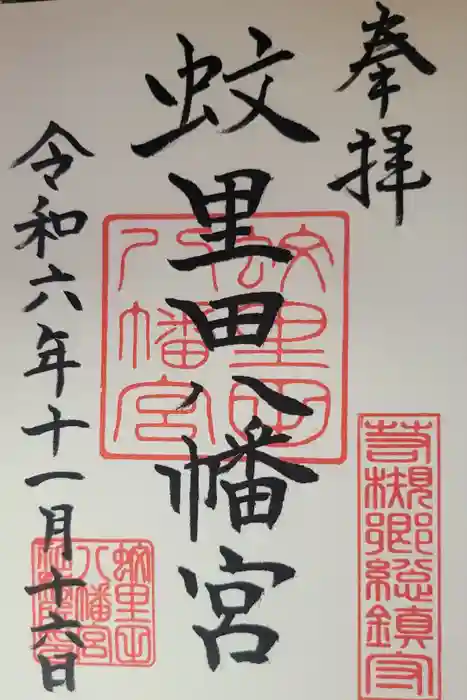 奉拝
蚊里田八幡宮
令和六年十一月十六日
蚊里田八幡宮
芋槻郷総鎮守
蚊里田
八幡宮